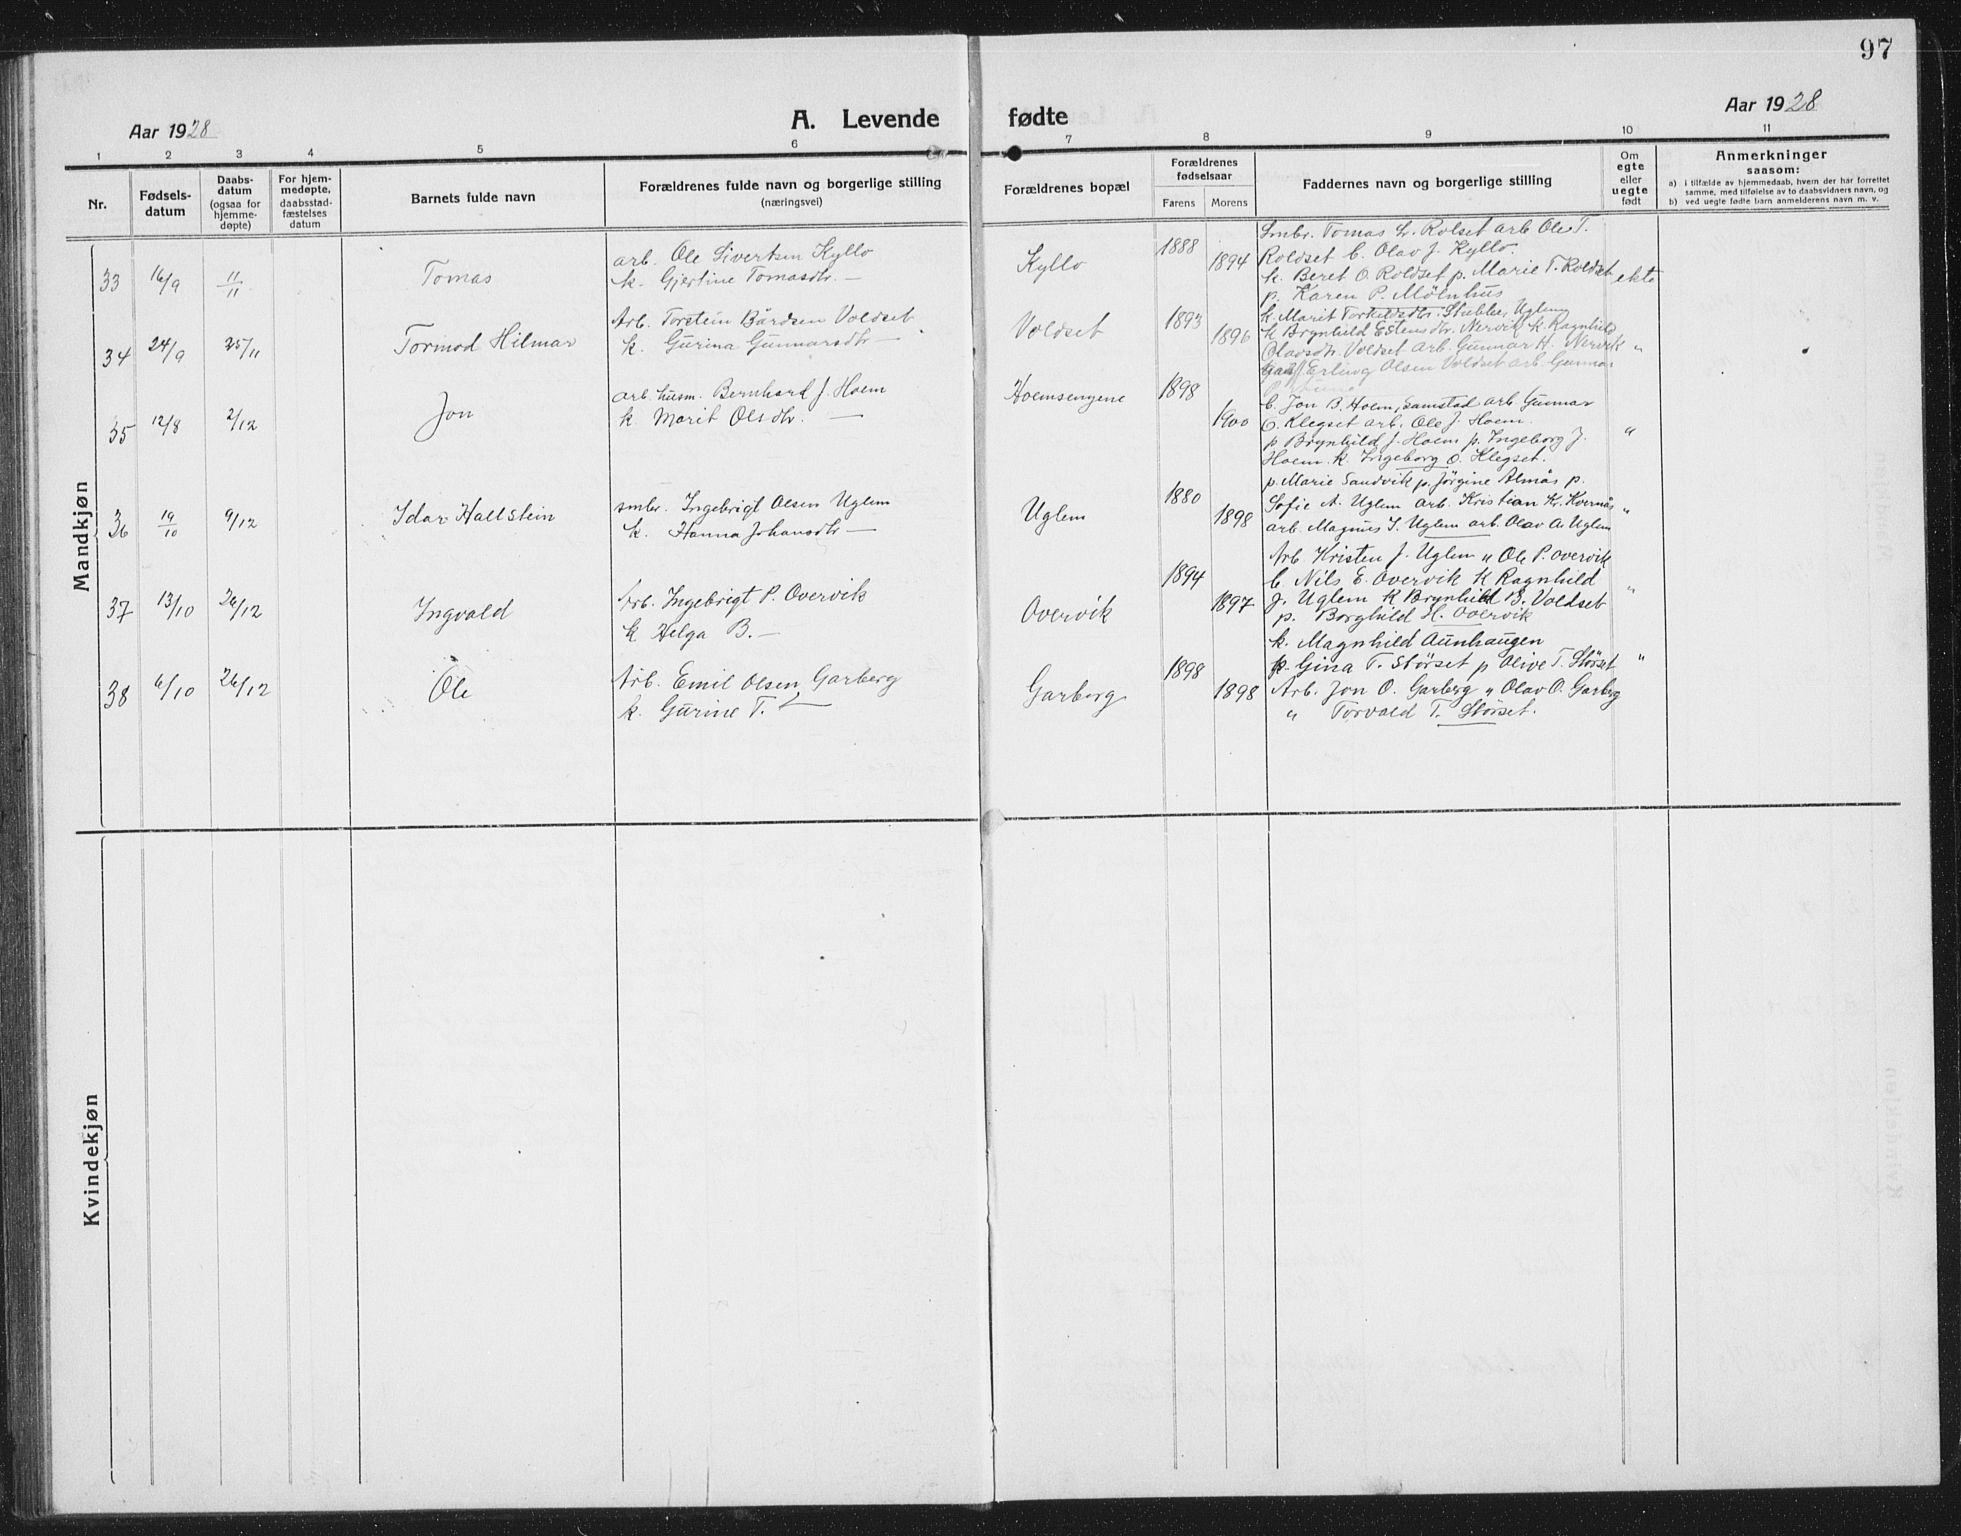 97
Aar 1928
A. Levende fødte
Aar 1928
1 2 3 4 5 6 7 8 9 10 11
Nr.
Fødsels-
datum
Daabs-
datum
(ogsaa for
hjemme-
døpte)
For hjem-
medøpte,
daabsstad-
fæstelses
datum
Barnets fulde navn
Forældrenes fulde navn og borgerlige stilling
(næringsvei)
Forældrenes bopæl
Forældrenes
fødselsaar
Farens Morens
Faddernes navn og borgerlige stilling
Om
egte
eller
uegte
født
Anmerkninger
saasom:
a) i tilfælde av hjemmedaab, hvem der har forrettet
samme, med tilføielse av to daabsvidners navn, og
b) ved uegte fødte barn anmelderens navn m. v.
Mandkjøn
33 16/9 11/11 Tomas
arb. Ole Sivertsen Kyllo
k. Gjertine Tomasdtr. —
Kyllo 1888 1894
Smbr. Tomas Rolset arb Ole T.
Roldset b. Olav J. Kyllo.
k. Beret O. Roldset p. Marie T. Roldset
p. Karen P. Mølnhus
ekte
34 24/9 25/11 Tormod Hilmar
Arb. Torstein Bårdsen Voldset
k. Gurina Gunnarsdtr —
Voldset 1893 1896
k. Marit Torkildsdtr. Stubbe, Uglem
k Brynhild Estensdtr. Nervik k. Ragnhild
Olavsdtr. Voldset arb. Gunnar H. Nervik "
Erling Olsen Voldset arb. Gunnar
35 12/8 2/12 Jon
arb. husm. Bernhard J. Hoem
k. Marit Olsdtr. —
Hoemsengene 1898 1900
b. Jon B. Hoem, Samstad arb Gunnar
O. Klegset arb. Ole J. Hoem.
p Brynhild J. Hoem p. Ingeborg J.
Hoem. k. Ingeborg O. Klegset.
"
36 19/10 9/12 Idar Hallstein
smbr. Ingebrigt Olsen Uglem
k. Hanna Johansdtr —
Uglem 1880 1898
p. Marie Sandvik p. Jørgine Almås p.
Sofie A. Uglem arb. Kristian Kr. Kvernås
arb. Magnus I. Uglem arb. Olav A. Uglem
"
37 13/10 26/12 Ingvald
Arb. Ingebrigt P. Overvik
k Helga B. —
Overvik 1894 1897
Arb. Kristen J. Uglem " Ole P. Overvik
b. Nils E. Overvik k Ragnhild
J. Uglem k Brynhild B. Voldset
p. Borghild H. Overvik
"
38 6/10 26/12 Ole
Arb. Emil Olsen Garberg
k. Gurine T. —
Garberg 1898 1898
k. Magnhild Aunhaugen
k. Gina T. Størset p Olive T. Størset
Arb. Jon O. Garberg " Olav O. Garberg
" Torvald T. Størset.
"
Kvindekjøn